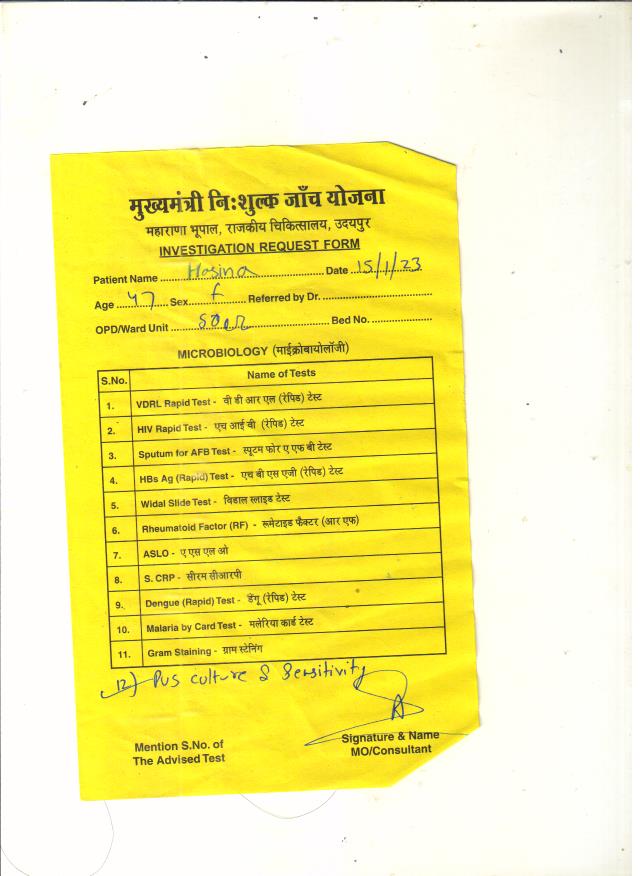 मुख्यमंत्री निःशुल्क जाँच योजना
महाराणा भूपाल, राजकीय चिकित्सालय, उदयपुर
INVESTIGATION REQUEST FORM
Patient Name Hasina Date 15/1/23
Age 47 Sex f Referred by Dr.
OPD/Ward Unit Bed No.
MICROBIOLOGY (माईक्रोबायोलॉजी)
S.No. Name of Tests
1. VDRL Rapid Test - वी डी आर एल (रेपिड) टेस्ट
2. HIV Rapid Test - एच आई वी (रेपिड) टेस्ट
3. Sputum for AFB Test - स्पूटम फोर ए एफ बी टेस्ट
4. HBs Ag (Rapid) Test - एच बी एस एजी (रेपिड) टेस्ट
5. Widal Slide Test - विडाल स्लाइड टेस्ट
6. Rheumatoid Factor (RF) - रूमेटाइड फैक्टर (आर एफ)
7. ASLO - ए एस एल ओ
8. S. CRP - सीरम सीआरपी
9. Dengue (Rapid) Test - डेंगू (रेपिड) टेस्ट
10. Malaria by Card Test - मलेरिया कार्ड टेस्ट
11. Gram Staining - ग्राम स्टेनिंग
12) Pus culture & Sensitivity
Mention S.No. of
The Advised Test
Signature & Name
MO/Consultant